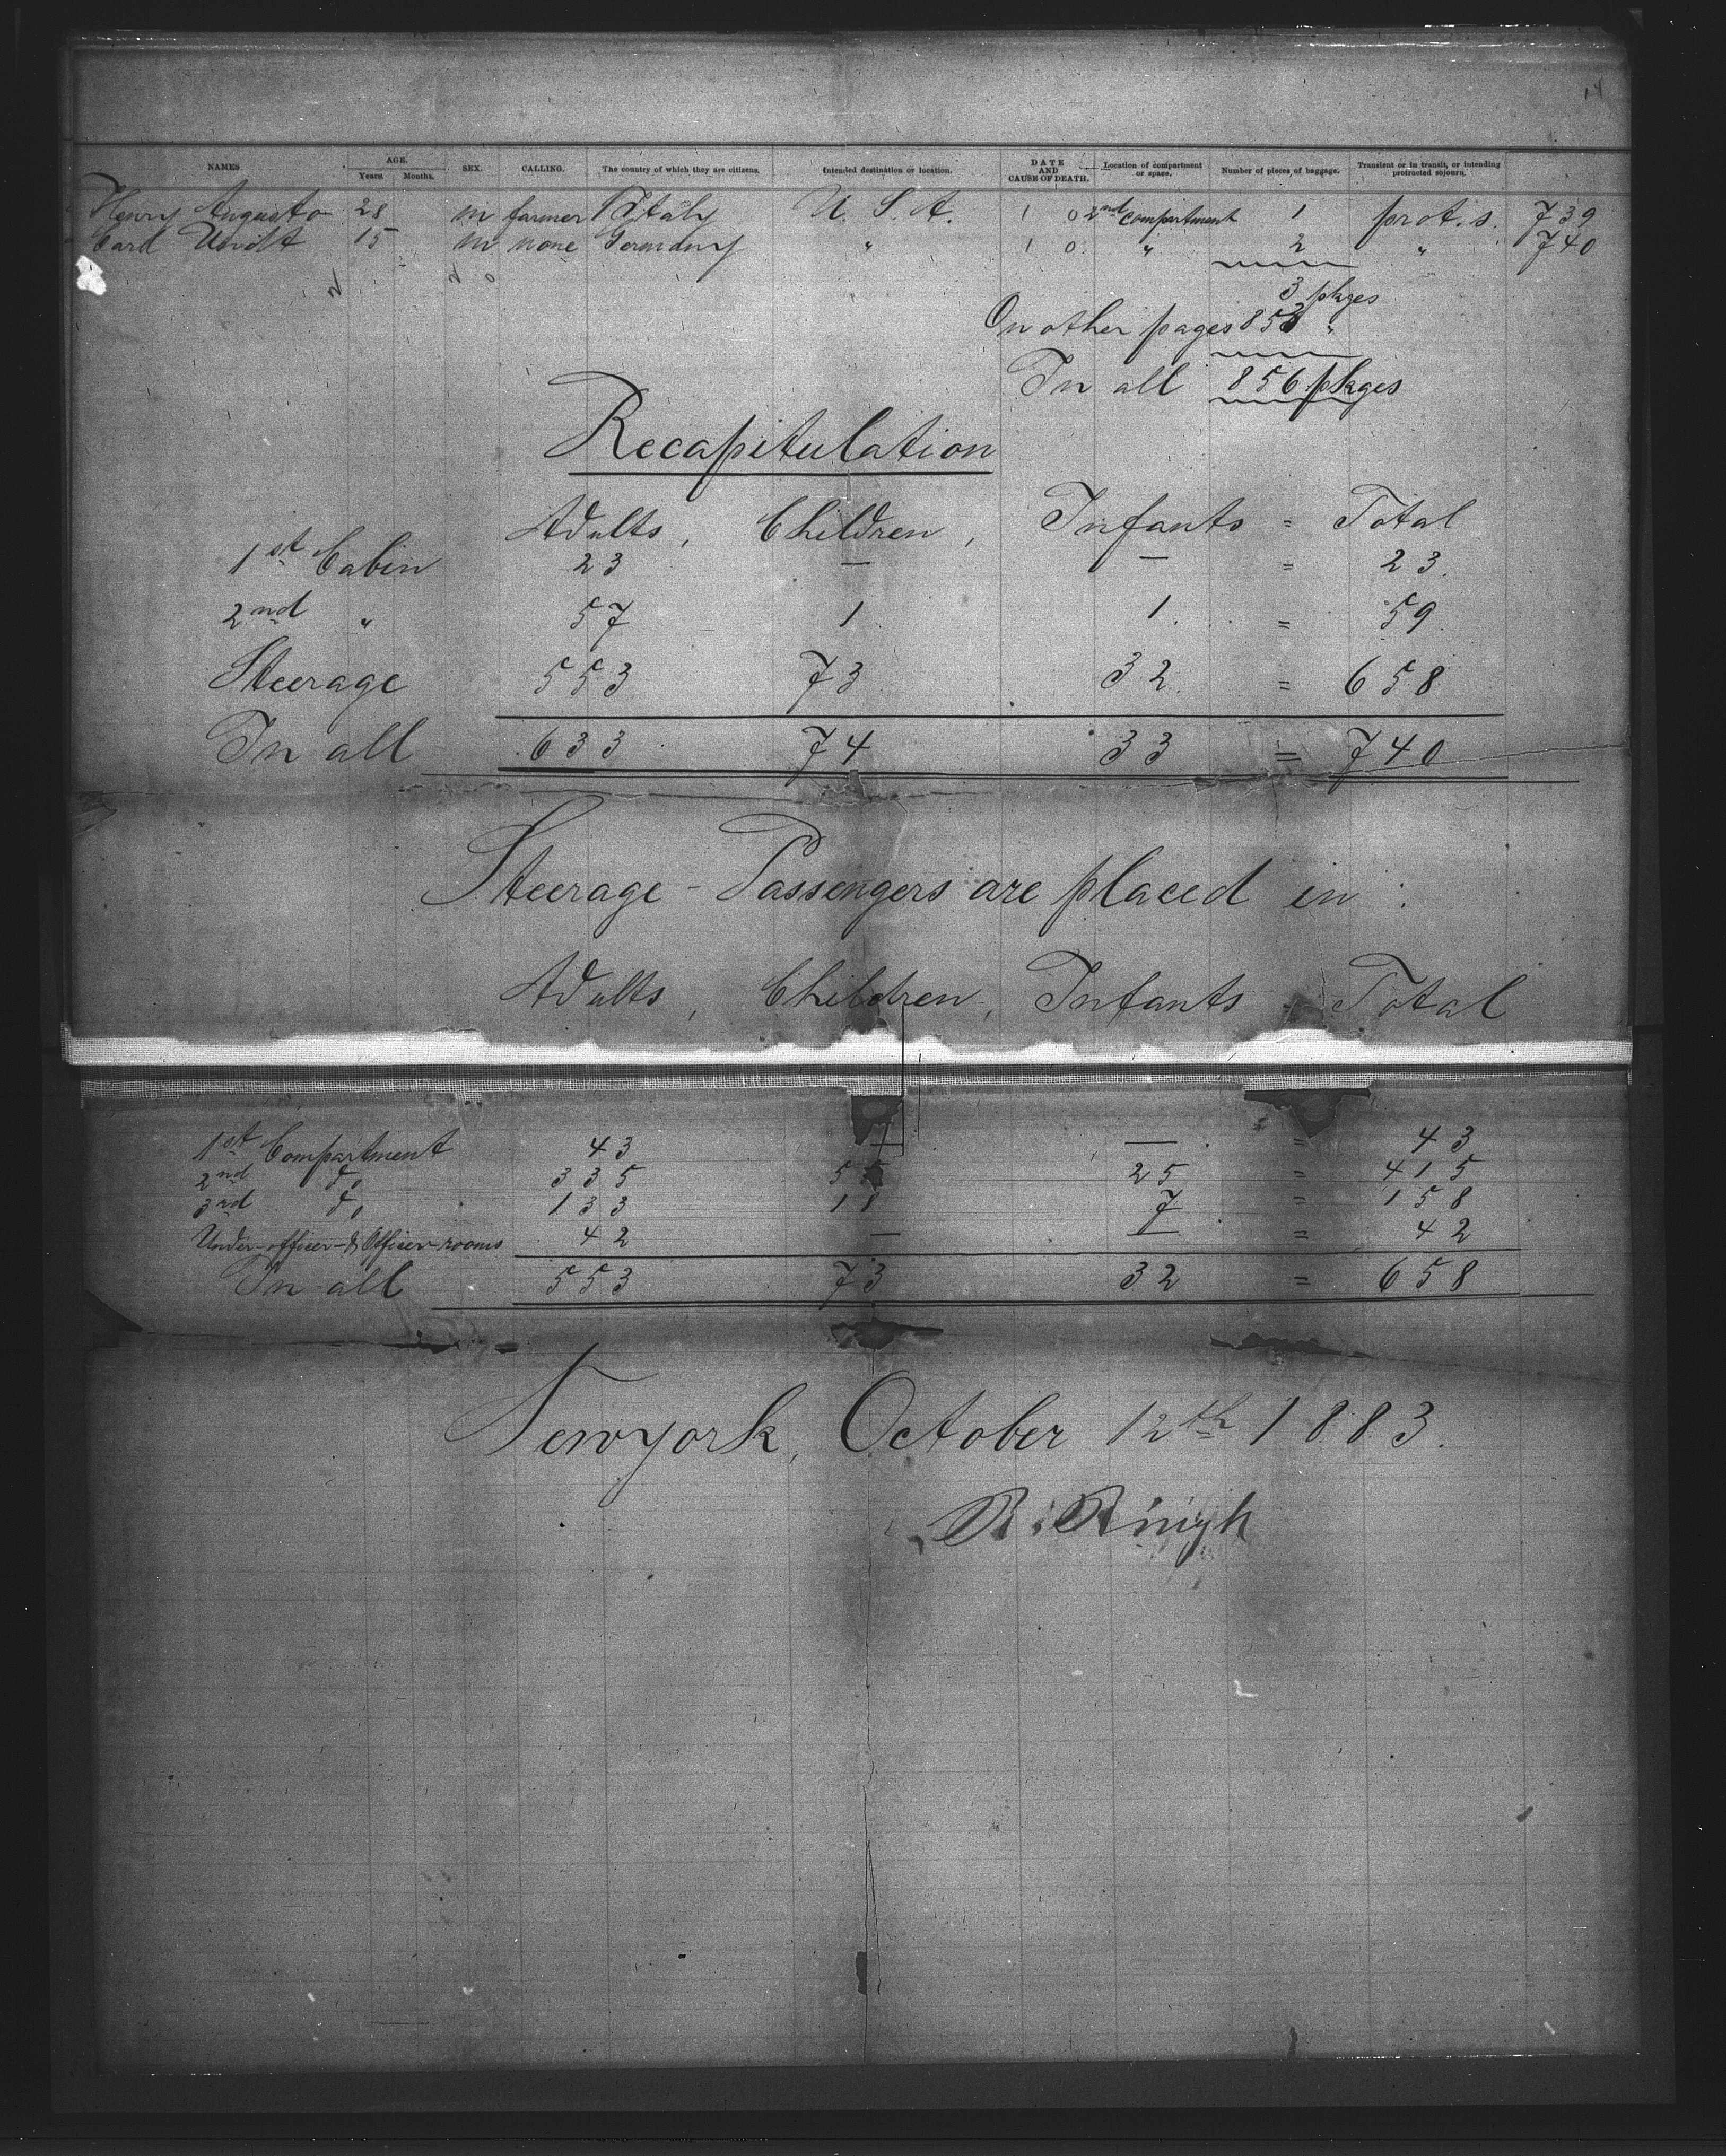 14
NAMES AGE. SEX. CALLING. The country of which they are citizens. Intended destination or location. DATE AND CAUSE OF DEATH. Location of compartment or space. Number of pieces of baggage. Transient or in transit, or intending protracted sojourn.
Years Months.
Henry Augusto 28 m farmer Italy U. S. A. 1 0 2nd compartment 1 prot. s. 739
Carl 15 m none Germany " 1 0 " 2 " 740
3 pkges
On other pages 853 "
In all 856 pkges
Recapitulation
Adults, Children, Infants = Total
1st Cabin 23 — — = 23.
2nd " 57 1 1. = 59.
Steerage 553 73 32. = 658
In all 633 74 33 = 740
Steerage - Passengers are placed in :
Adults, Children, Infants Total
1st Compartment 43 — — = 43
2nd do 335 55 25 = 415
3rd do 133 18 7 = 158
Under-officer- & Officer-rooms 42 — — = 42
In all 553 73 32 = 658
Newyork, October 12th 1883.